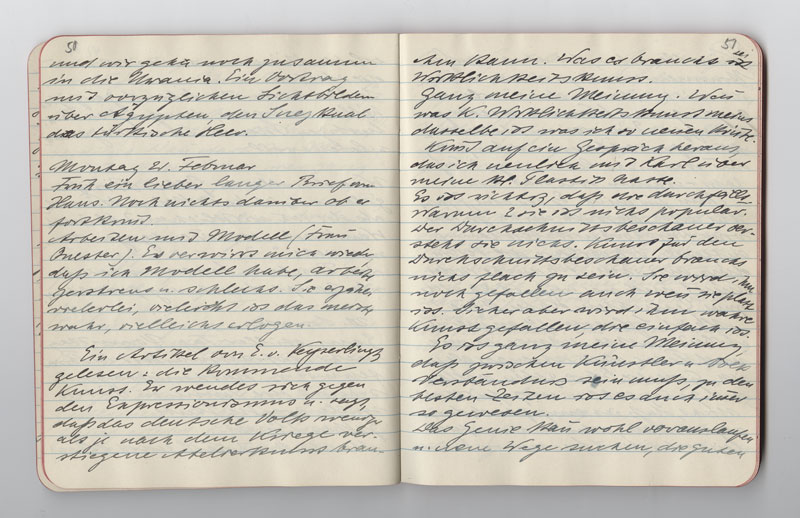 50
und wir gehn noch zusammen
in die Urania. Ein Vortrag
mit vorzüglichen Lichtbildern
über Ägypten, den Suezkanal
das türkische Heer.
Montag 21. Februar
Früh ein lieber langer Brief von
Hans. Noch nichts darüber ob er
fortkommt.
Arbeiten mit Modell (Frau
). Es verwirrt mich wieder
daß ich Modell habe, arbeite
zerstreut u. schlecht. Sie erzählt
vielerlei, vielleicht ist das meiste
wahr, vielleicht erlogen
Ein Artikel von E. v. Keyserlingk
gelesen: die kommende
Kunst. Er wendet sich gegen
den Expressionismus u. sagt,
daß das deutsche Volk weniger
als je nach dem Kriege ver-
stiegene Atelierkunst brau-
51
chen kann. Was es braucht ist
Wirklichkeitskunst.
Ganz meine Meinung. Was
was K. Wirklichkeitskunst meint
dasselbe ist was ich
Kunst auf ein Gespräch heraus
das ich neulich mit Karl über
meine kl. Plastik hatte.
Es ist richtig, daß die
Warum? sie ist nicht populär.
Der Durchschnittsbeschauer ver-
steht sie nicht. Kunst für den
Durchschnittsbeschauer braucht
nicht flach zu sein. Sie wird ihm
noch gefallen auch wenn sie platt
ist. Sicher aber wird ihm wahre
Kunst gefallen, die einfach ist.
Es ist ganz meine Meinung
daß zwischen Künstler u. Volk
Verständnis sein muß, zu den
besten Zeiten ist es auch immer
so gewesen.
Das Genie kann wohl vorauslaufen
u. neue Wege suchen, die guten